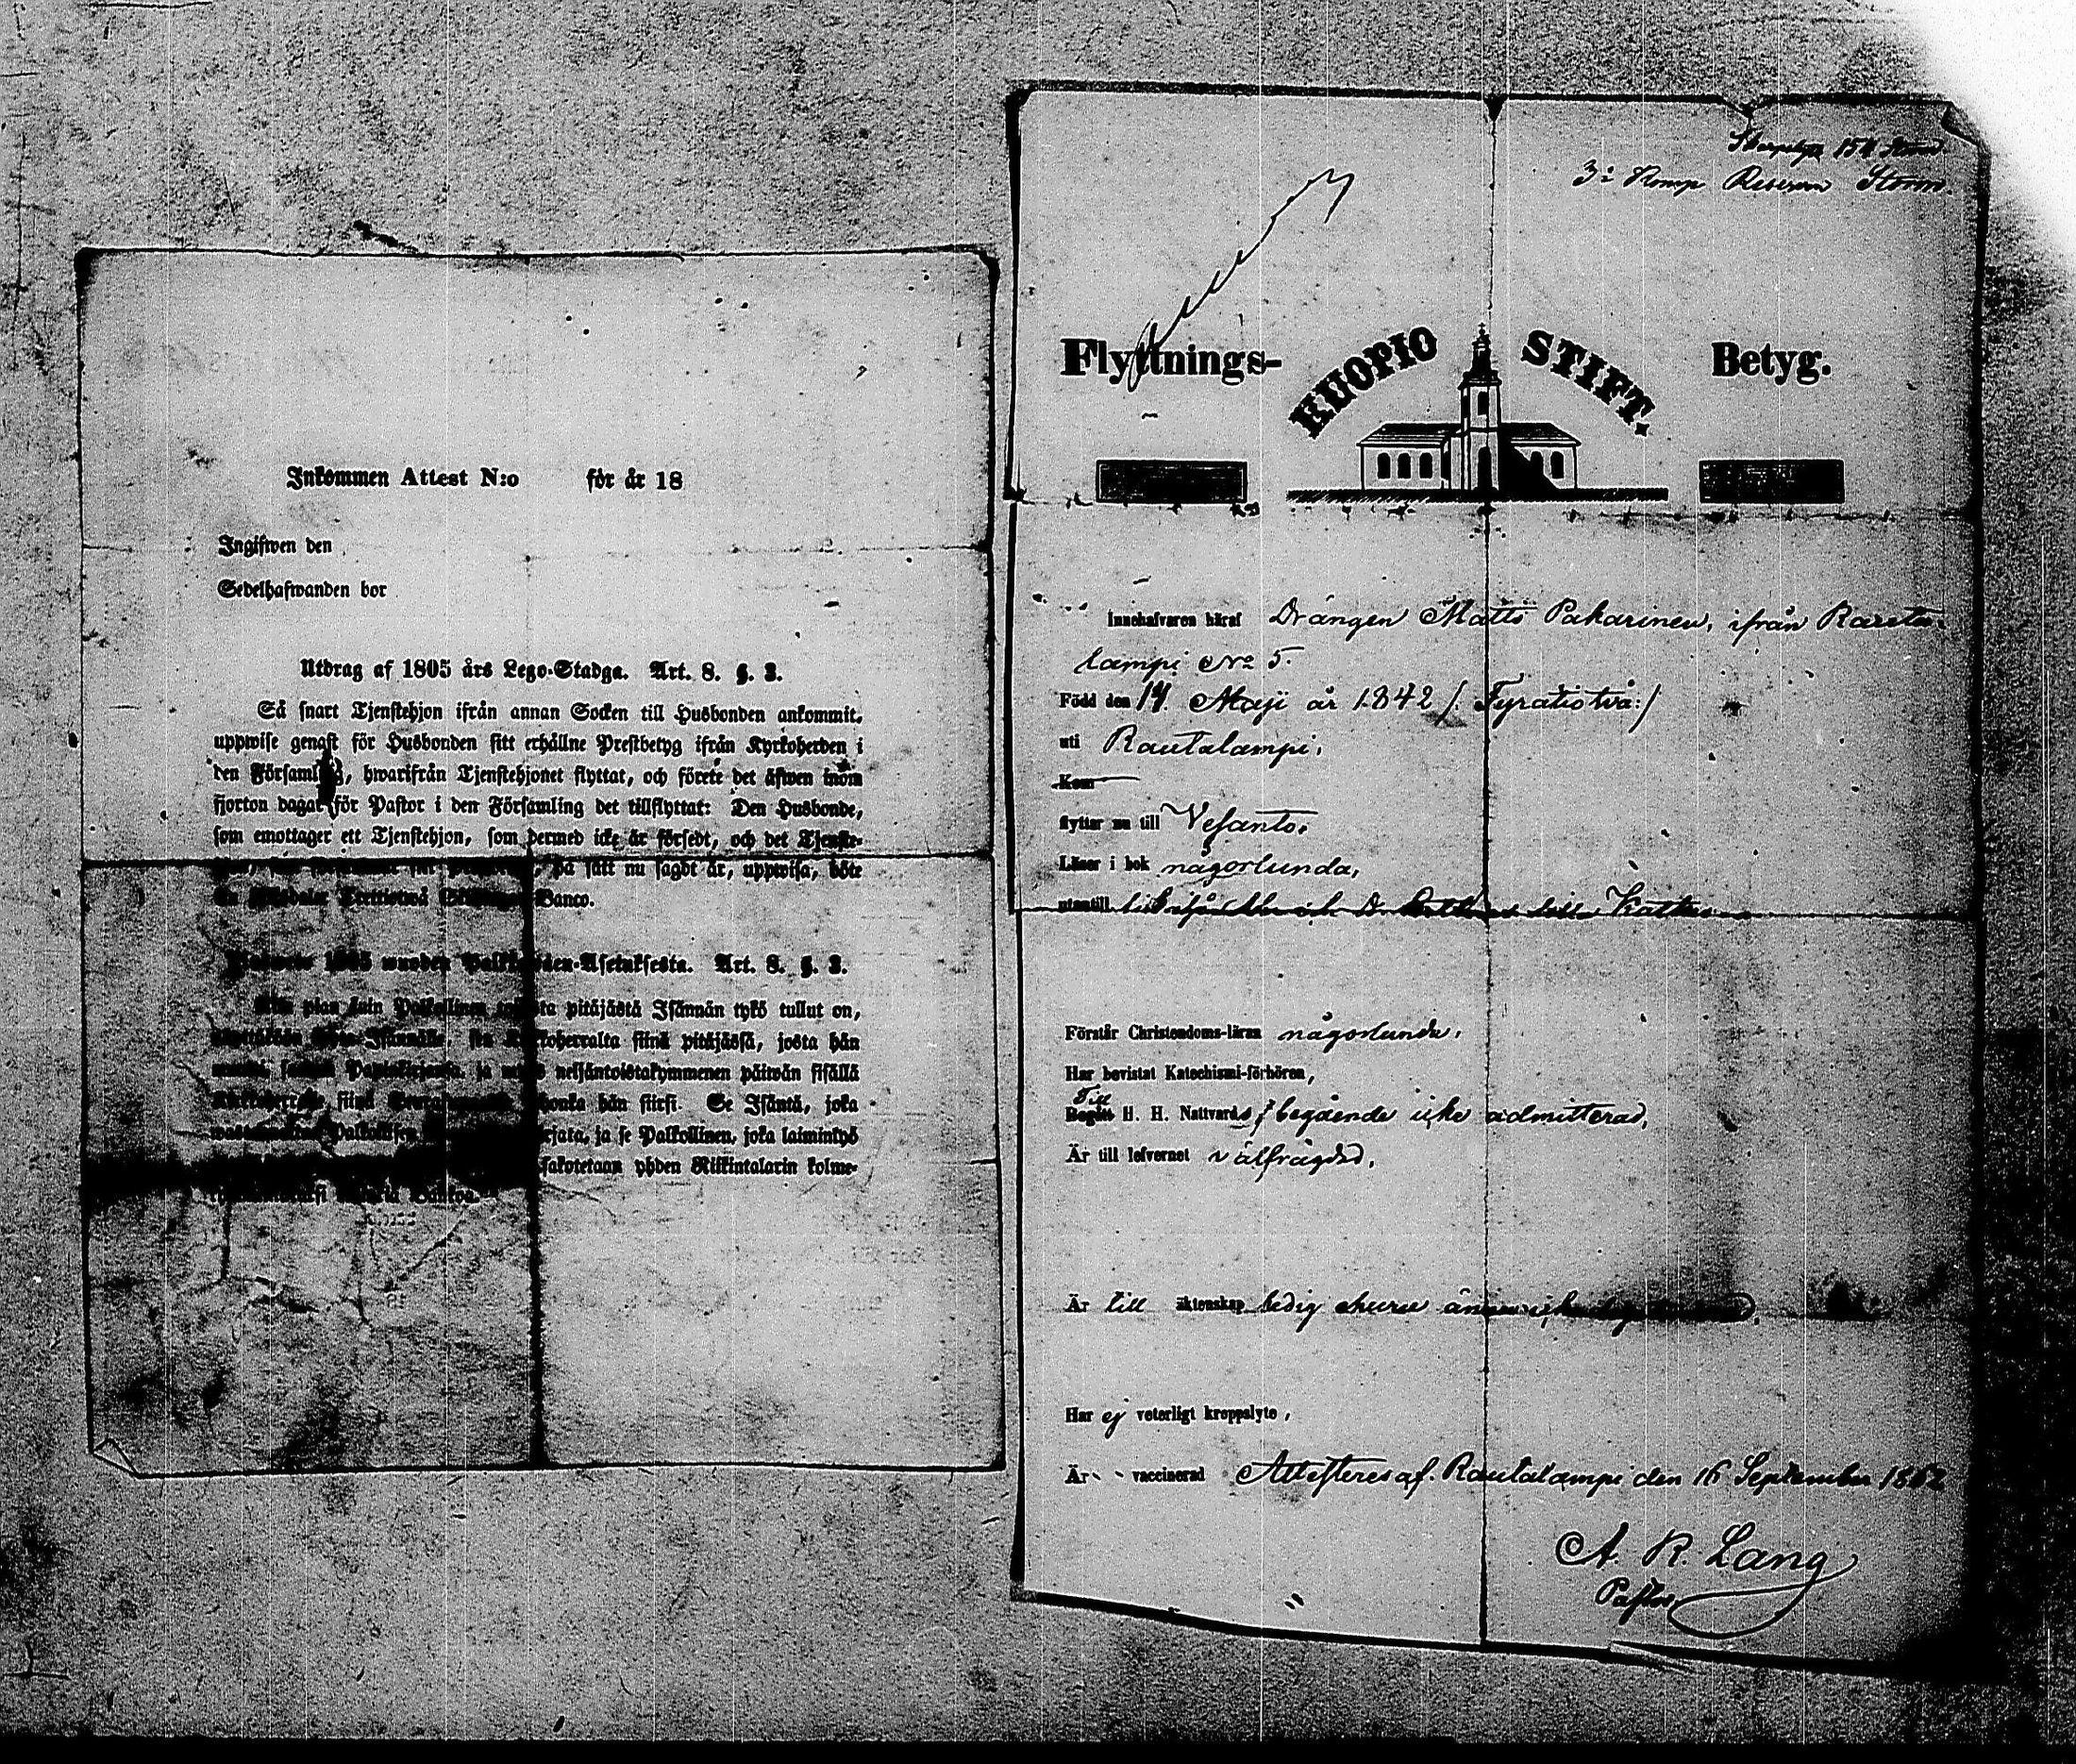 Inkommen Attest N:o för år 18
Ingifwen den
Sedelhafwanden bor
Utdrag af 1805 års Lego-Stadga. Art. 8. §. 3.
Så snart Tjenstehjon ifrån annan Socken till Husbonden ankommit,
uppwise genast för Husbonden sitt erhållne Prestbetyg ifrån Kyrkoherden i
den Församling, hwarifrån Tjenstehjonet flyttat, och förete det äfwen inom
fjorton dagar för Pastor i den Församling det tillflyttat: Den Husbonde,
som emottager ett Tjenstehjon, som dermed icke är försedt, och det Tjenste-
på sätt nu sagdt är, uppwisa, böte
Banco.
1805 Art. 8. §. 3.
pian kuin Palkollinen pitäjästä Isännän tykö tullut on,
siinä pitäjässä, josta hän
ja neljäntoistakymmenen päiwän sisällä
siinä honka hän siirsi. Se Isäntä, joka
ja se Palkollinen, joka laiminlyö
sakotetaan yhden Riikintalarin kolme-
3:e Komp Reserven Storm.
Flyttnings- KUOPIO STIFT. Betyg.
Innehafvaren häraf Drängen Matts Pakarinen, ifrån Rauta-
lampi No 5.
Född den 14. Maji år 1842 /: Fyratiotvå:/
uti Rautalampi,
Kom
flyttar nu till Vesanto,
Läser i bok någorlunda,
utantill
Förstår Christendoms-läran någorlunda,
Har bevistat Katechismi-förhören,
Till
Begått H. H. Nattvards begående icke admitterad,
Är till lefvernet välfrägdad,
Är till äktenskap ledig ehuru ännu
Har ej veterligt kroppslyte,
Är vaccinerad Attesteres af. Rautalampi den 16 September 1862
A. R. Lang
Pastor